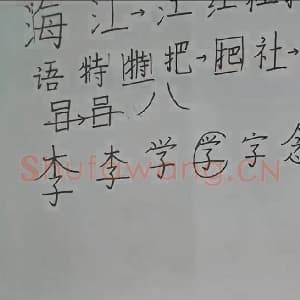 海 江→江 红
语 特 特 把→把 社→
吕→吕 八
李 李 学 学 字
Shufawang.CN